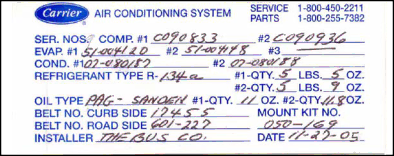 Carrier AIR CONDITIONING SYSTEM SERVICE 1-800-450-2211
PARTS 1-800-255-7382
SER. NOS. COMP. #1 C090833 #2 C090936
EVAP. #1 51-00412D #2 51-00448 #3
COND. #1 07-080187 #2 07-080188
REFRIGERANT TYPE R-134a #1-QTY. 5 LBS. 5 OZ.
#2-QTY. 5 LBS. 9 OZ.
OIL TYPE PAG-SANDEN #1-QTY. 11 OZ. #2-QTY. 11.8 OZ.
BELT NO. CURB SIDE 17455 MOUNT KIT NO.
BELT NO. ROAD SIDE 601-227 050-169
INSTALLER THE BUS CO. DATE 11-27-05